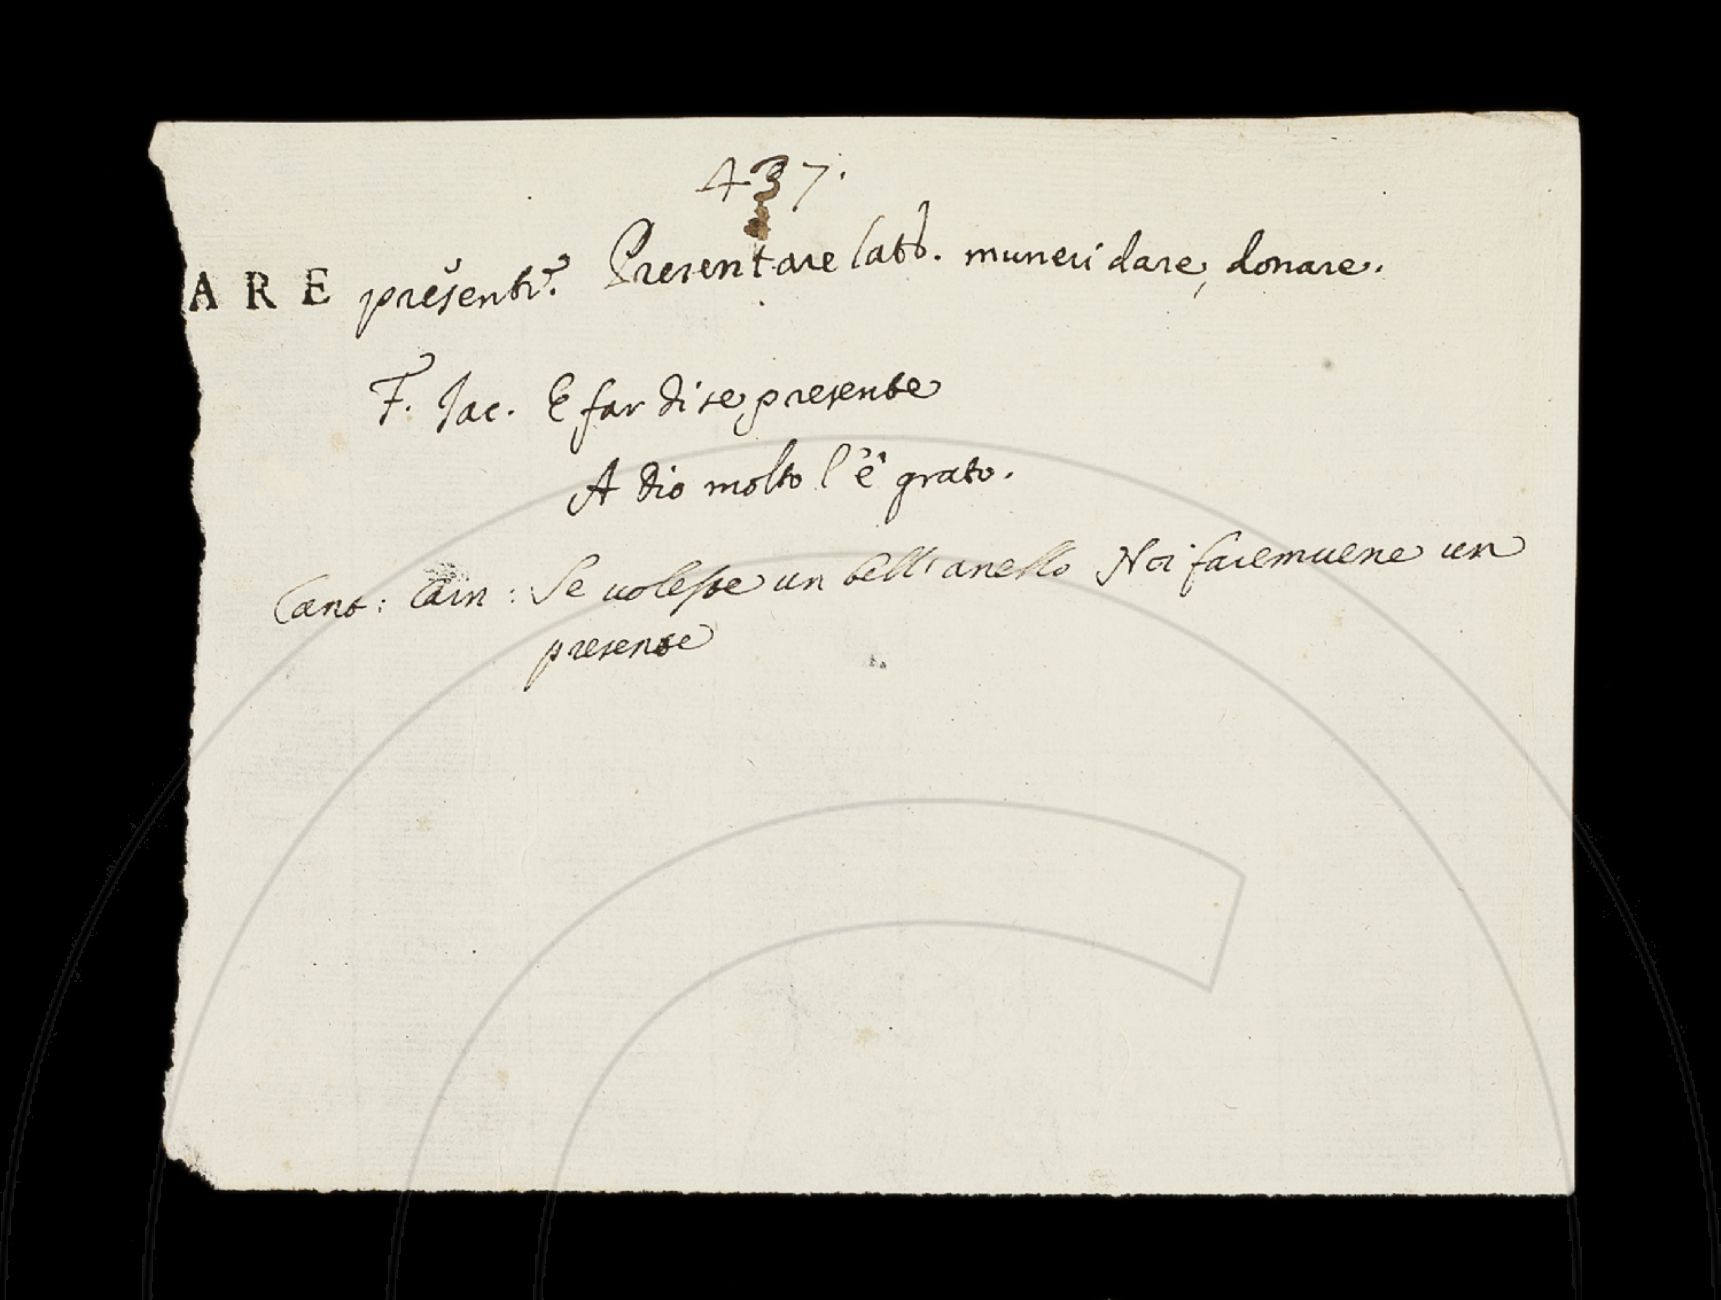 437.
ARE presente. Presentare latt. muneri dare, donare.
F. Jac. E far di se presente
A Dio molto l'è grato.
Cant: Carn: Se voleste un bell'anello Noi faremuene un
presente